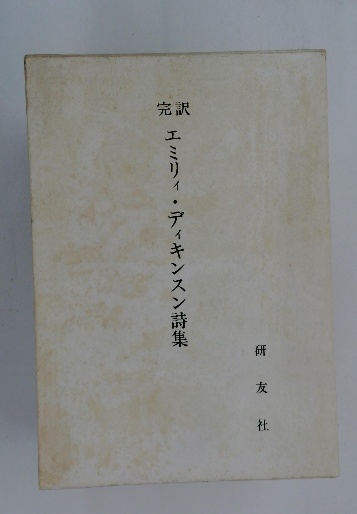 完訳
エミリィ・ディキンスン詩集
研友社